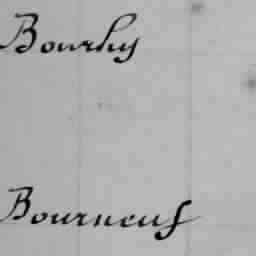 Bourhy
Bourneuf